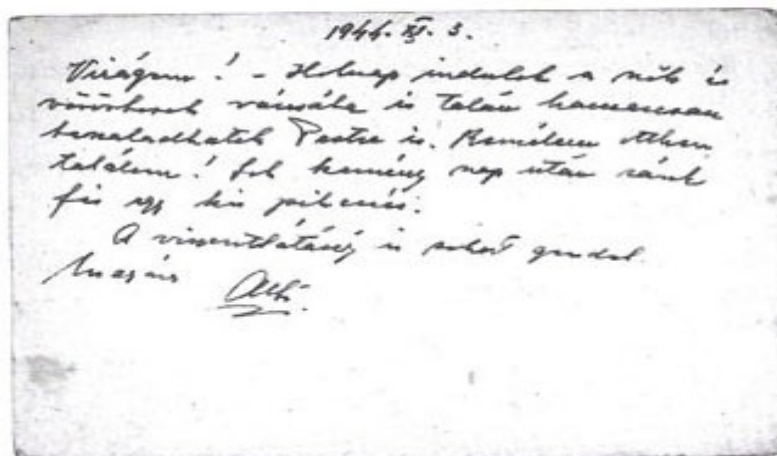 1944. XI. 3.
Virágom! - Holnap indulok a nők és
is talán hamarosan
Pestre is. Remélem otthon
találom! Sok kemény nap után ránk
fér egy kis pihenés.
A viszontlátásig is sokat gondol
Magára Attó.